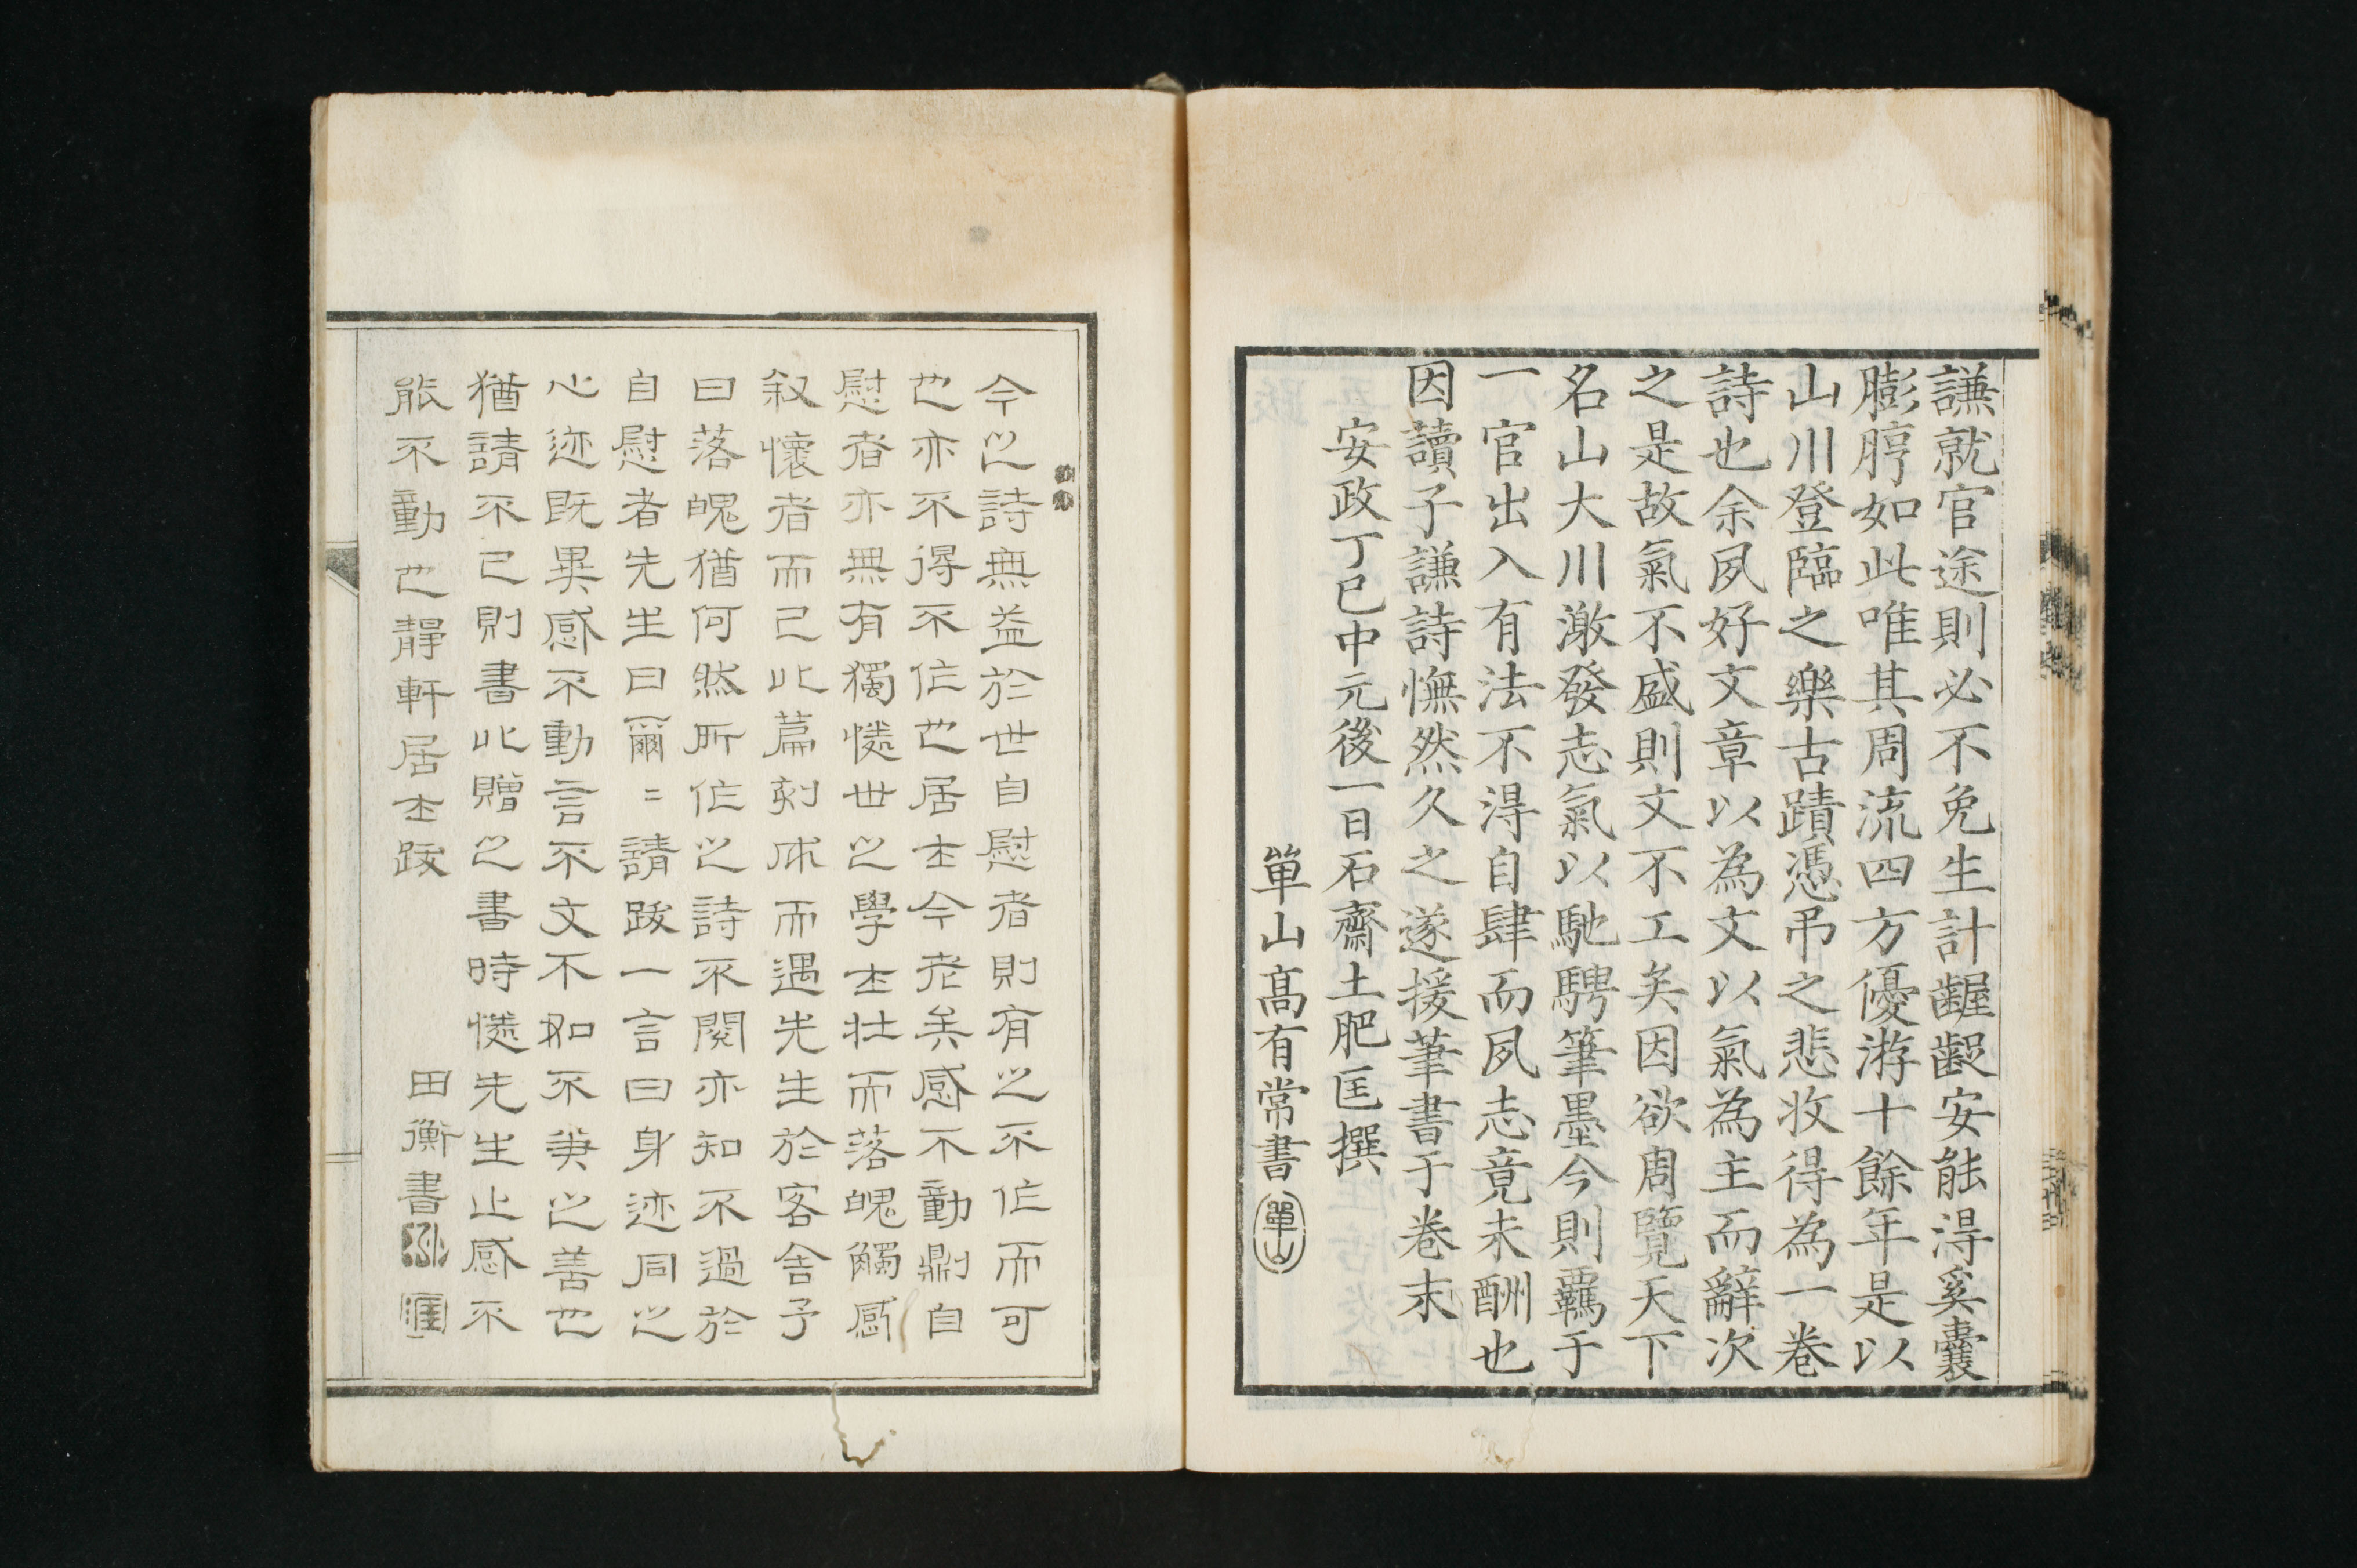 謙就官途則必不免生計齷齪安能淂奚囊
膨脝如此唯其周流四方優游十餘年是以
山川登臨之樂古蹟憑吊之悲收得為一卷
詩也余夙好文章以為文以氣為主而辭次
之是故氣不盛則文不工矣因欲周覽天下
名山大川激發志氣以馳騁筆墨今則羈于
一官出入有法不淂自肆而夙志竟未酬也
因讀子謙詩憮然久之遂援筆書于卷末
安政丁巳中元後一日石齋土肥匡撰
單山高有常書
單山
今之詩無益於世自慰者則有之不作而可
也亦不得不作也居士今老矣感不動則自
慰者亦無有獨悽世之學士壯而落魄觸感
叙懷者而已此篇刻成而遇先生於客舍予
曰落魄猶何然所作之詩不閱亦知不過於
自慰者先生曰爾〻請跋一言曰身迹同之
心迹既異感不動言不文不如不異之善也
猶請不已則書此贈之書時悽先生止感不
能不動也靜軒居士跋
田衡書